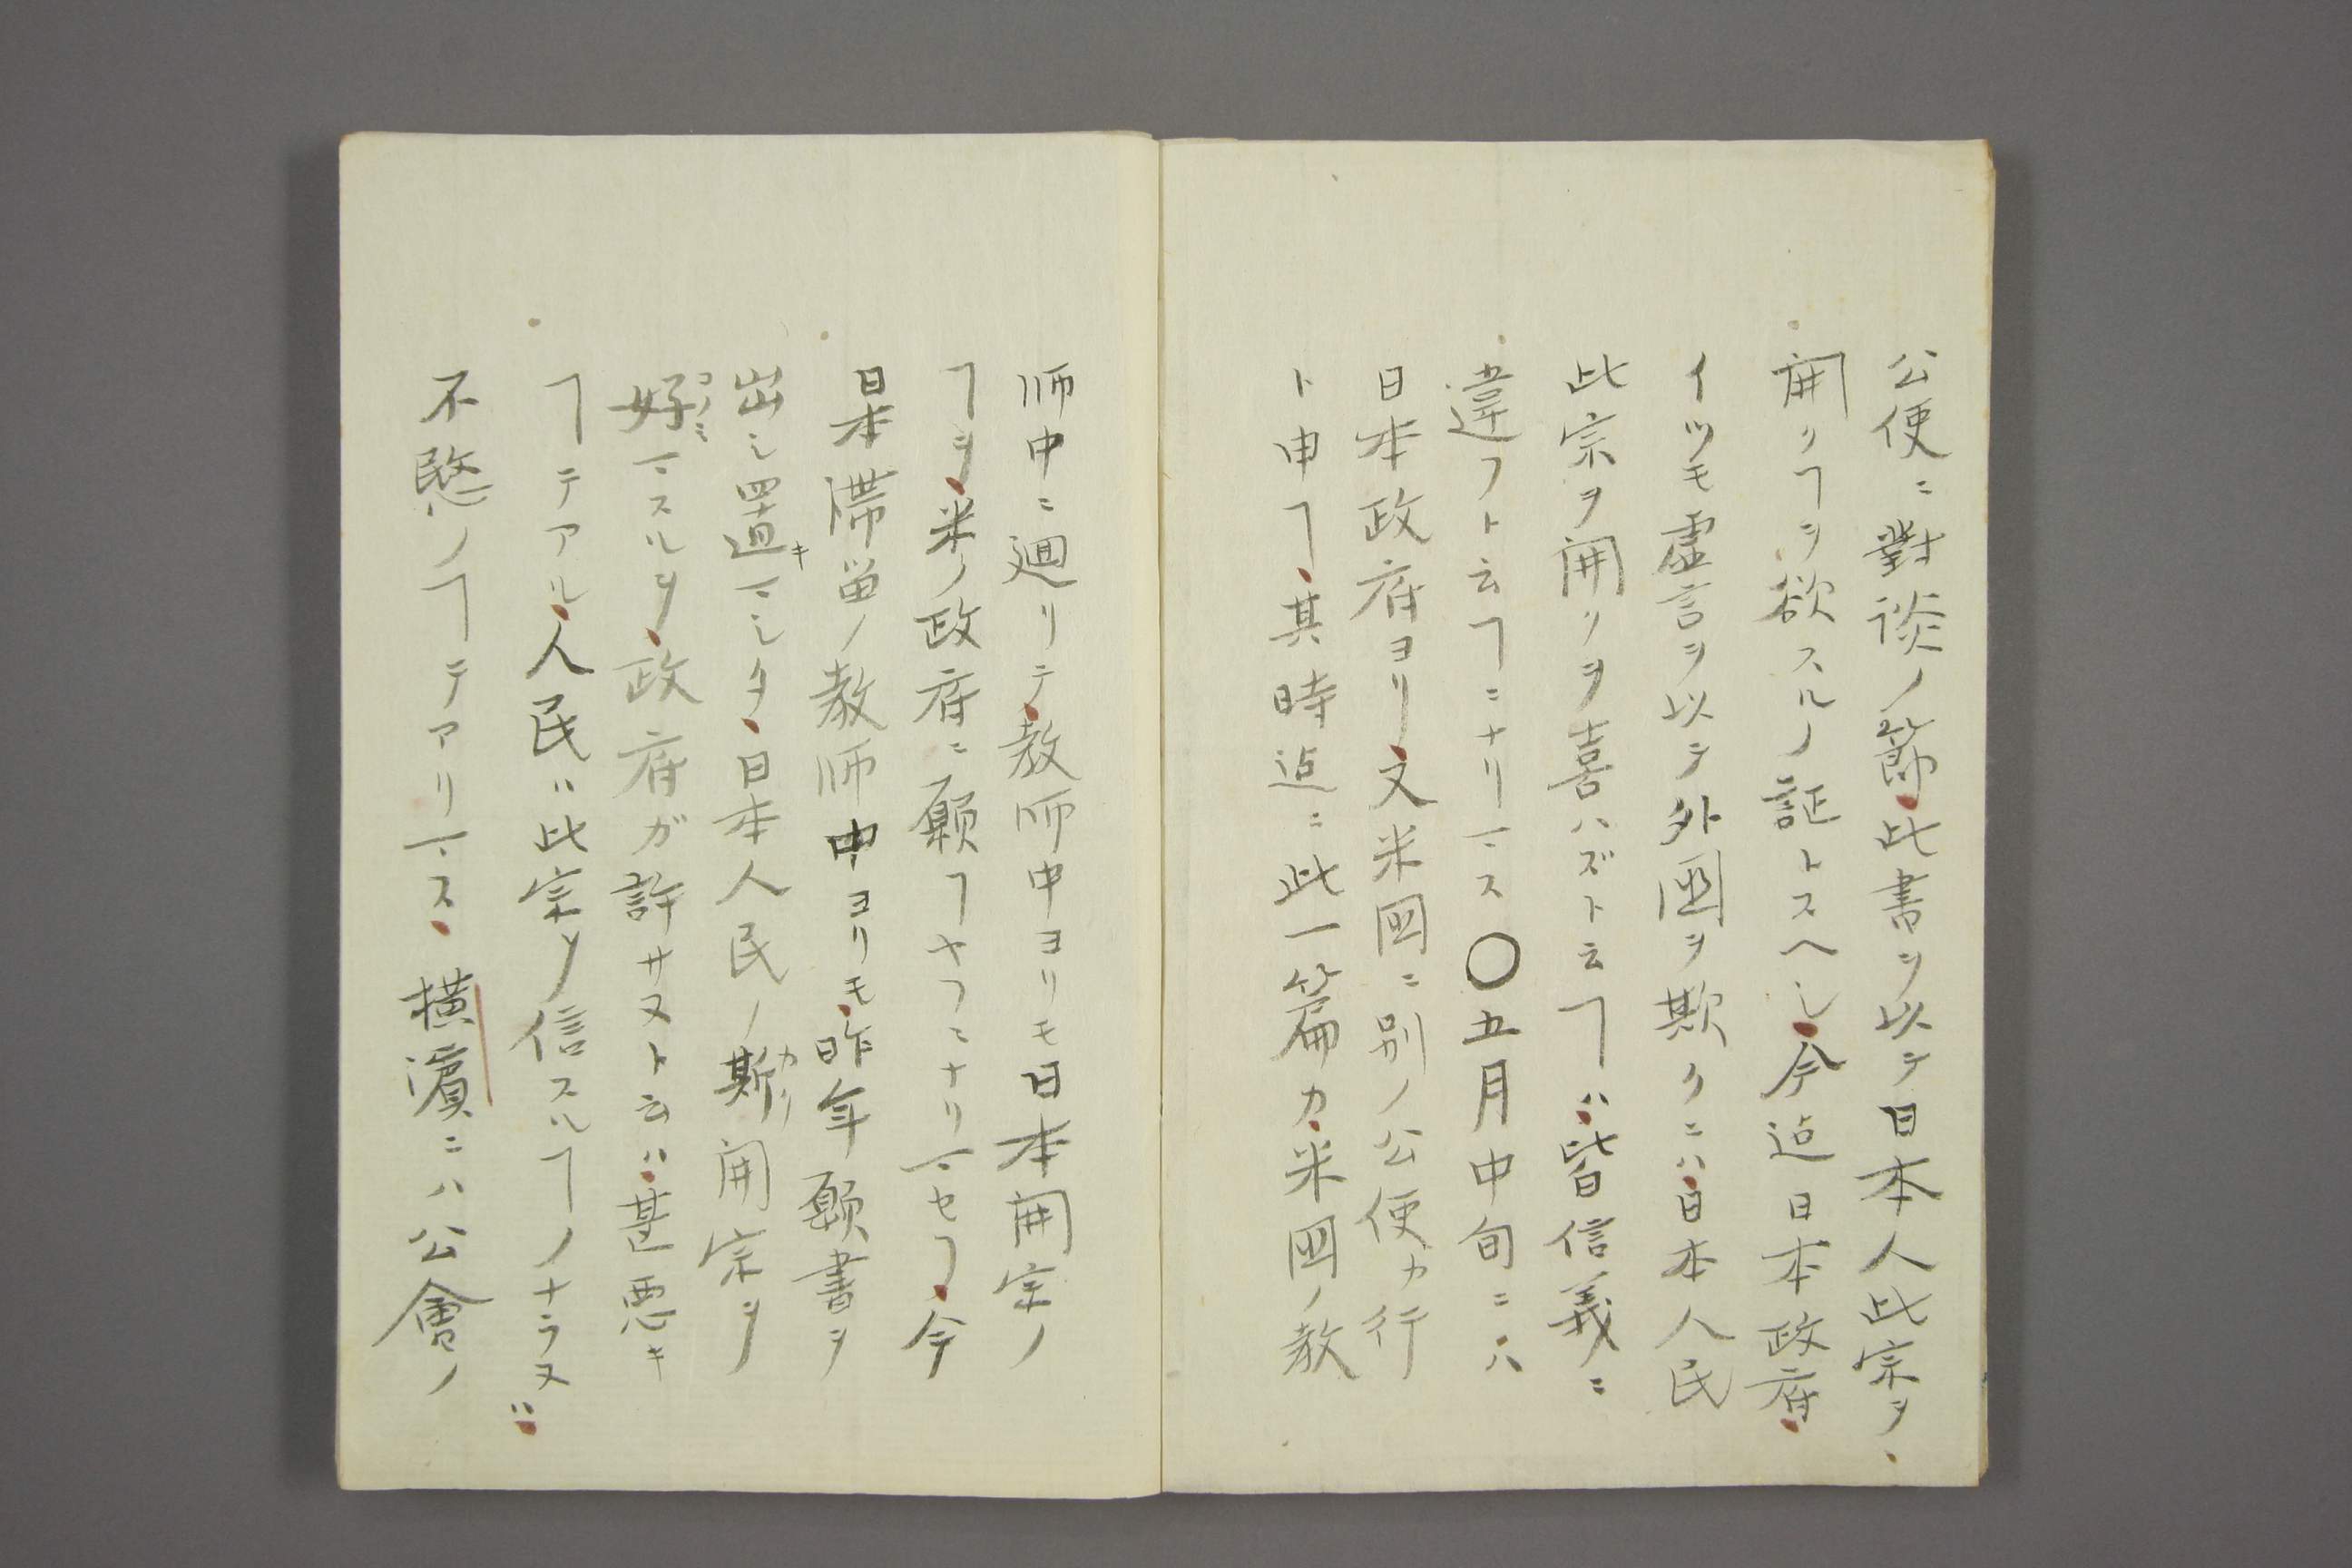 公使ニ對談ノ節、此書ヲ以テ日本人此宗ヲ、
開クヿヲ欲スルノ証トスヘシ、今迠日本政府、
イツモ虚言ヲ以テ外國ヲ欺クニハ、日本人民
此宗ヲ開クヲ喜ハズト云ヿハ、皆信義ニ
違フト云ヿニナリマス〇五月中旬ニハ
日本政府ヨリ、又米国ニ別ノ公使カ行
ト申ヿ、其時迠ニ此一篇カ、米国ノ教
師中ニ廻リテ、教師中ヨリモ日本開宗ノ
ヿヲ、米ノ政府ニ願フヤフニナリマセフ、今
日本滞留ノ教師中ヨリモ、昨年願書ヲ
出シ置キマシタ、日本人民ノ斯カク開宗ヲ
好コノミマスルヲ、政府ガ許サヌト云ハ、甚悪キ
ヿテアル、人民ハ此宗ヲ信スルヿノナラヌハ、
不愍ノヿテアリマス、横濱ニハ公會ノ